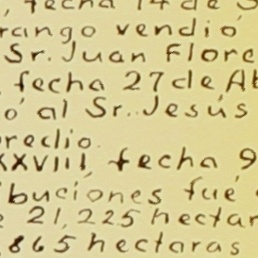 , fecha 14 de
rango vendió
Sr. Juan Flore
, fecha 27 de Ab
ó al Sr. Jesús
predio.
XXVIII, fecha 9
buciones fué
21,225 hectar
,865 hectaras